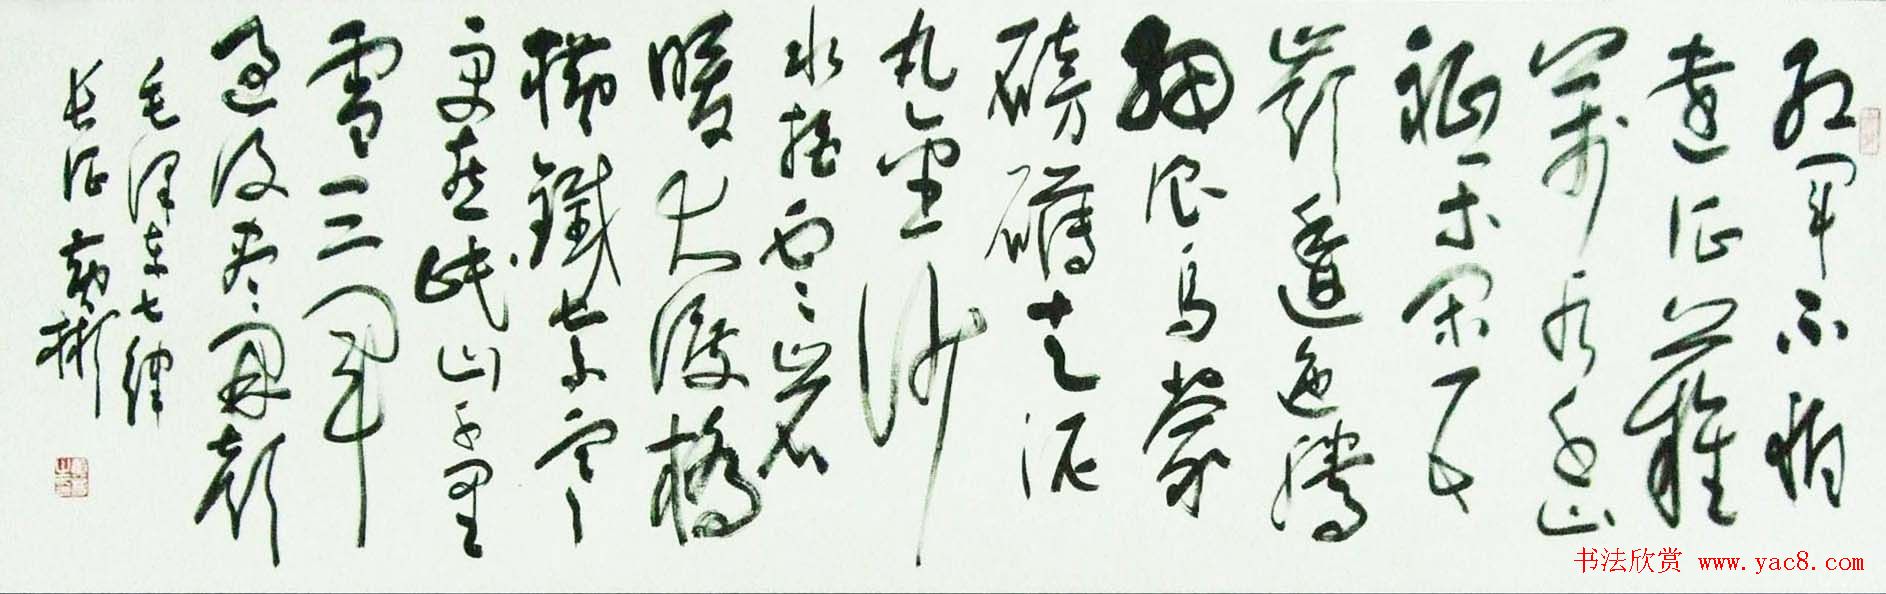 红军不怕
遠征難
萬水千山
祗等闲五
嶺逶迤腾
细浪乌蒙
磅礴走泥
丸金沙
水拍云崖
暖大渡橋
横鐵索寒
更喜岷山千里
雪三军
过后尽开颜
毛泽东七律
长征 彬
书法欣赏 www.yac8.com